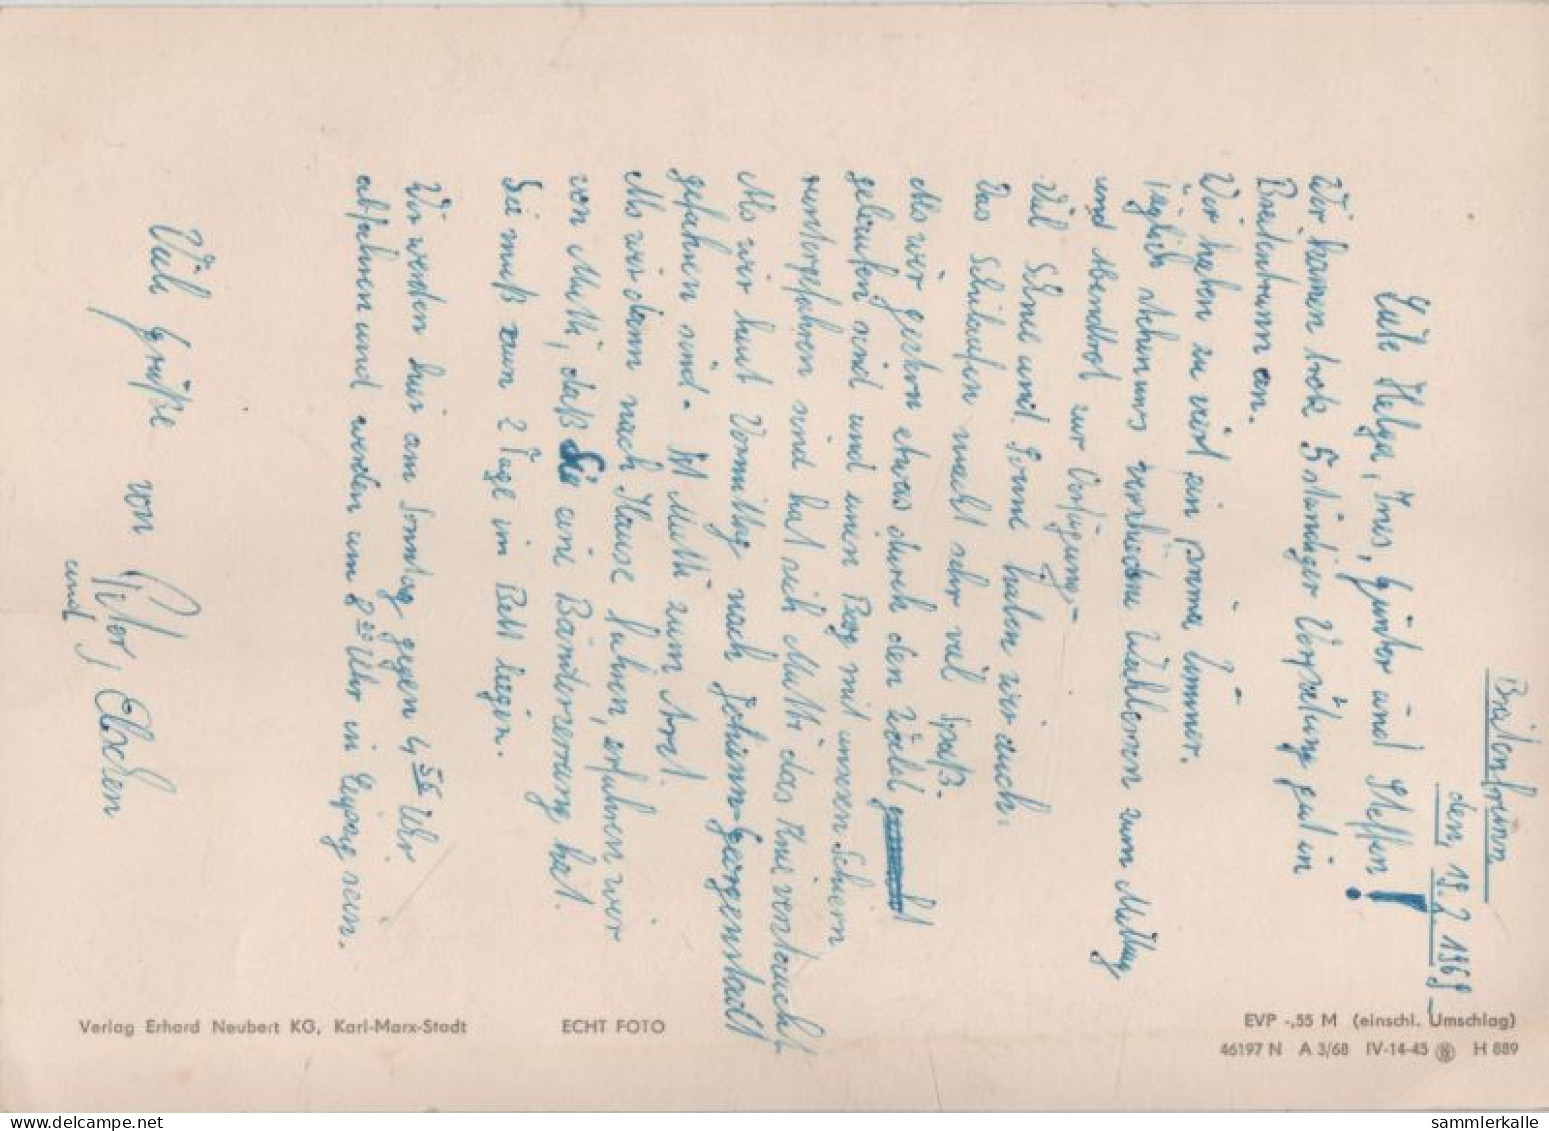 Breitenbrunn
den, 19.2.1969
Liebe Helga, Ines, Günter und Steffen!
Wir kamen trotz 5 stündiger Verspätung gut in
Breitenbrunn an.
Wir haben zu viert ein prima Zimmer.
Täglich stehen uns verschiedene Wahlessen zum Mittag
und Abendbrot zur Verfügung.
Viel Schnee und Sonne haben wir auch.
Das Schilaufen macht sehr viel Spaß.
Als wir gestern etwas durch den Wald
gelaufen sind und einen Berg mit unseren Schiern
runtergefahren sind hat sich Mutti das Knie verstaucht.
Als wir heut Vormittag nach Johann-Georgenstadt
gefahren sind. Ist Mutti zum Arzt.
Als wir dann nach Hause fuhren, erfuhren wir
von Mutti, daß Sie eine Bänderzerrung hat.
Sie muß nun 2 Tage im Bett liegen.
Wir werden hier am Sonntag gegen 4 55 Uhr
abfahren und werden um 8 22 Uhr in Leipzig sein.
Viele Grüße von Peter,
und Elxchen
Verlag Erhard Neubert KG, Karl-Marx-Stadt
ECHT FOTO
EVP -,55 M (einschl. Umschlag)
46197 N A 3/68 IV-14-45 H 889
sammlerkalle